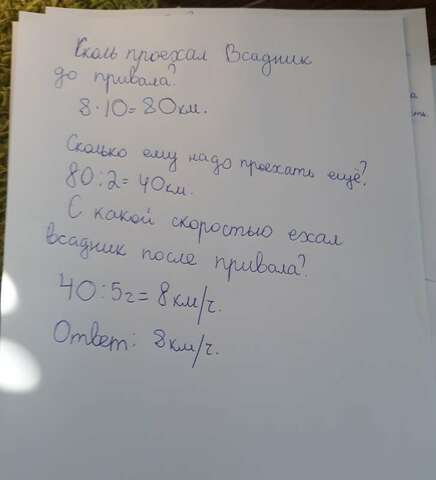 Сколь проехал Всадник
до привала?
8·10=80км.
Сколько ему надо проехать ещё?
80:2=40км.
С какой скоростью ехал
всадник после привала?
40:5г=8км/ч.
Ответ: 8км/ч.